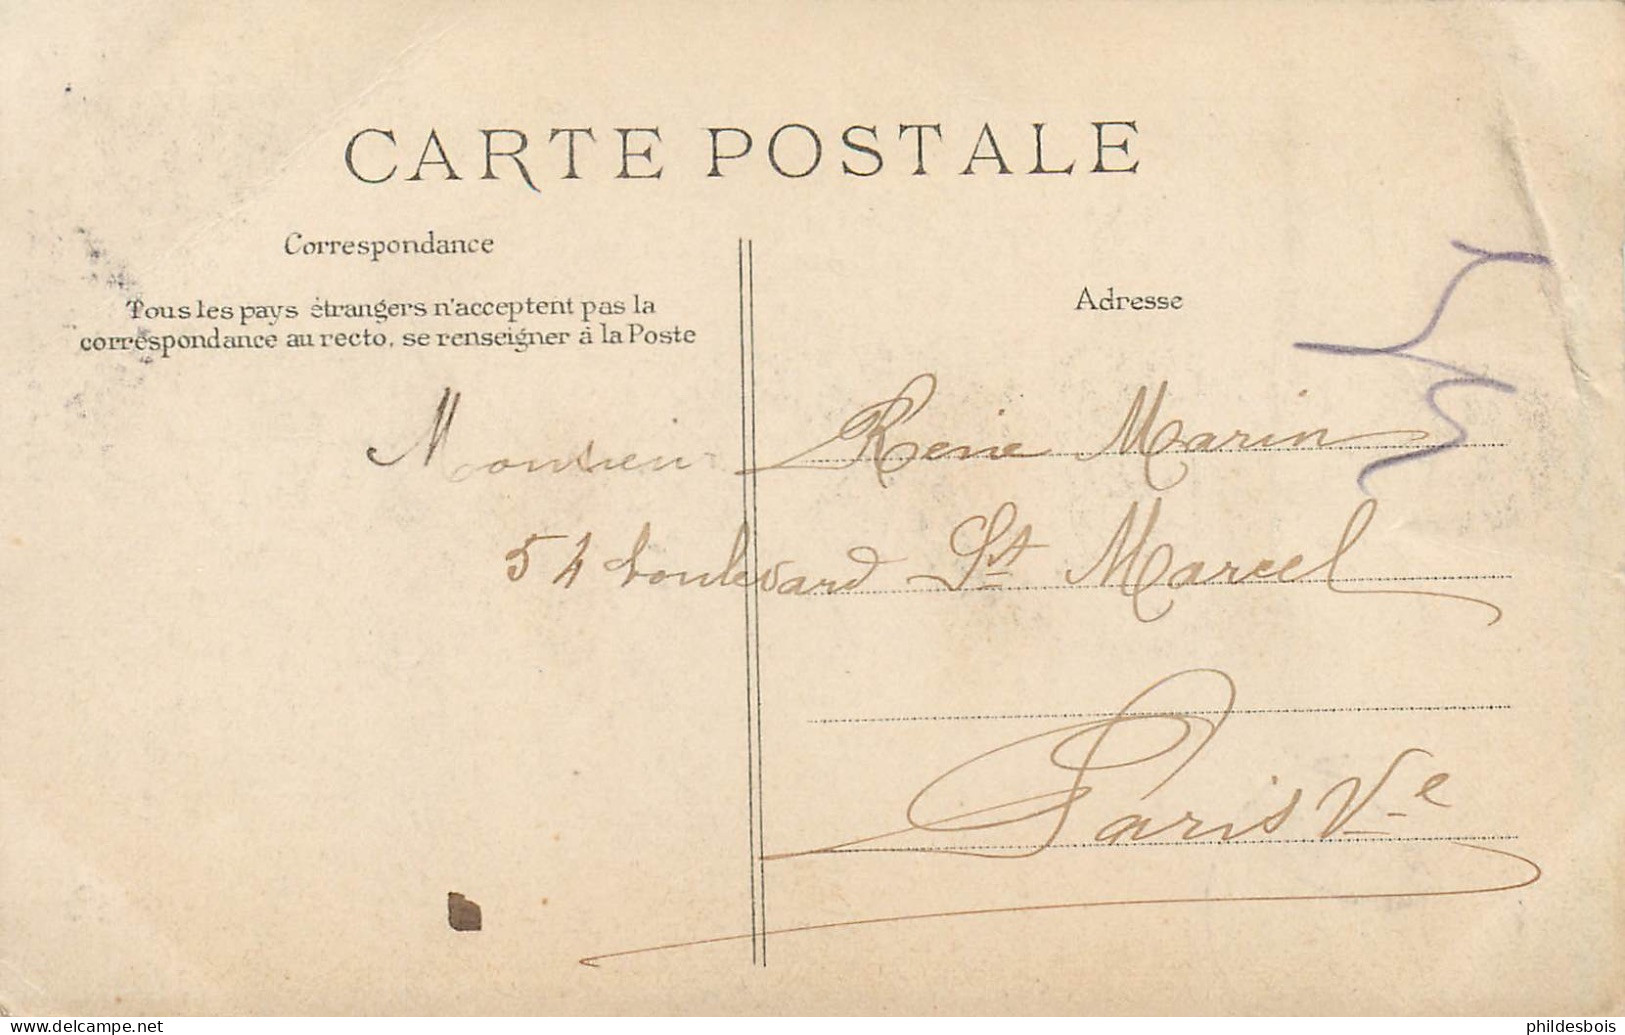 CARTE POSTALE
Correspondance
Tous les pays étrangers n'acceptent pas la
correspondance au recto, se renseigner à la Poste
Adresse
Monsieur René Marin
54 boulevard St Marcel
Paris Ve
www.delcampe.net
phildesbois